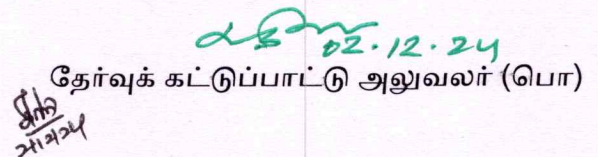 02.12.24
தேர்வுக் கட்டுப்பாட்டு அலுவலர் (பொ)
2/12/24